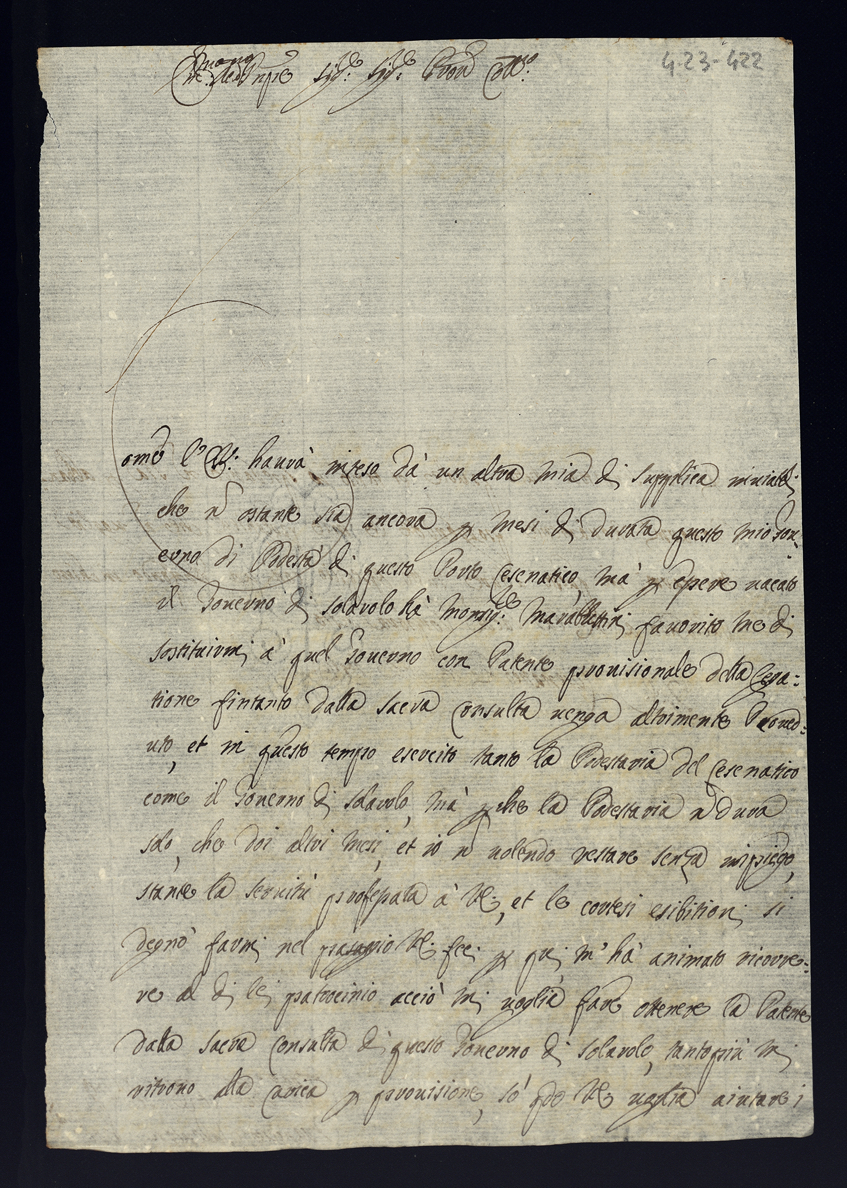 4-23-422
Sig:re Sig:re Pron Coll:mo
ome l'E.V: haurà inteso dà un altra mia di supplica inviatali
che ñ ostante sia ancora p mesi di durata questo mio Gou-
erno di Podestà di questo Porto Cesenatico, mà p essere uacato
il Gouerno di Solarolo hà Monsig:re favorito me di
sostituirmi à quel Gouerno con Patente provisionale della Lega=
tione fintanto dalla Sacra Consulta uenga altrimente Proved=
uto, et in questo tempo esercito tanto la Podestaria del Cesenatico
come il Gouerno di Solarolo, mà pche la Podestaria ñ dura
solo, che doi altri mesi, et io ñ uolendo restare senza impiego,
stante la seruitù professata à VE:, et le cortesi esibitioni si
degnò farmi nel VE: p qui m'hà animato ricorre=
re al di lei patrocinio acciò mi uoglia fare ottenere la Patente
dalla Sacra Consulta di questo Gouerno di Solarolo, tantopiù mi
ritrouo alla carica p prouisione, sò VE uoglia aiutare i